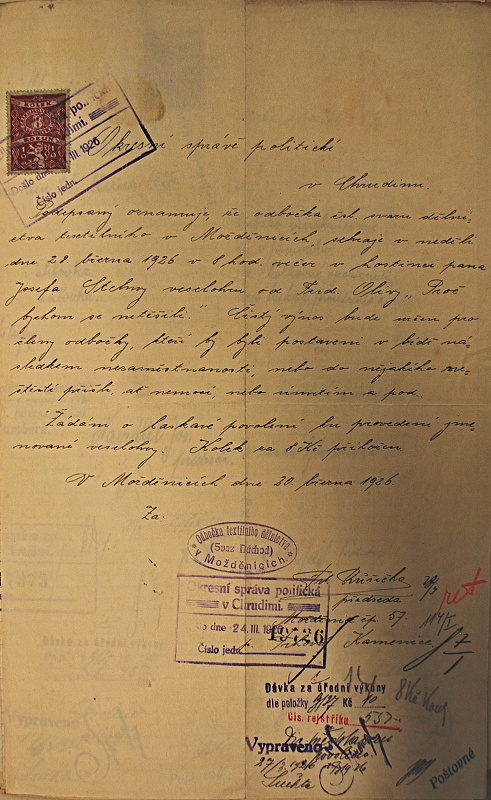 KOLEK
8
KORUN
III 1926
Došlo dne
Číslo jedn.
Okresní správě politické
v Chrudimi.
Podepsaný oznamuje, že odbočka čsl. svazu dělni-
ctva textilního v Možděnicích, sehraje v neděli
dne 28. března 1926 v 8 hod. večer v hostinci pana
Josefa Stehny veselohru od Ferd. Olivy „Proč
bychom se netěšili." Čistý výnos bude určen pro
členy odbočky, kteří by byli postaveni v bídě ná-
sledkem nezaměstnanosti, nebo do nějakého ne-
štěstí přišli, ať nemocí, nebo úmrtím a pod.
Žádám o laskavé povolení ku provedení jme-
nované veselohry. Kolek za 8 Kč přiložen.
V Možděnicích dne 20. března 1926.
Za:
Odbočka textilního dělnictva
(Svaz Náchod)
v Možděnicích.
Okresní správa politická
v Chrudimi.
dne 24. III. 1926
19726
Číslo jedn.
Růžička
předseda
čp. 57.
Kamenice
Dávka za úřední výkony
dle položky 9/77 Kč 10
Čís. rejstříku 537-
8 Kč
Vypraveno
Poštovné